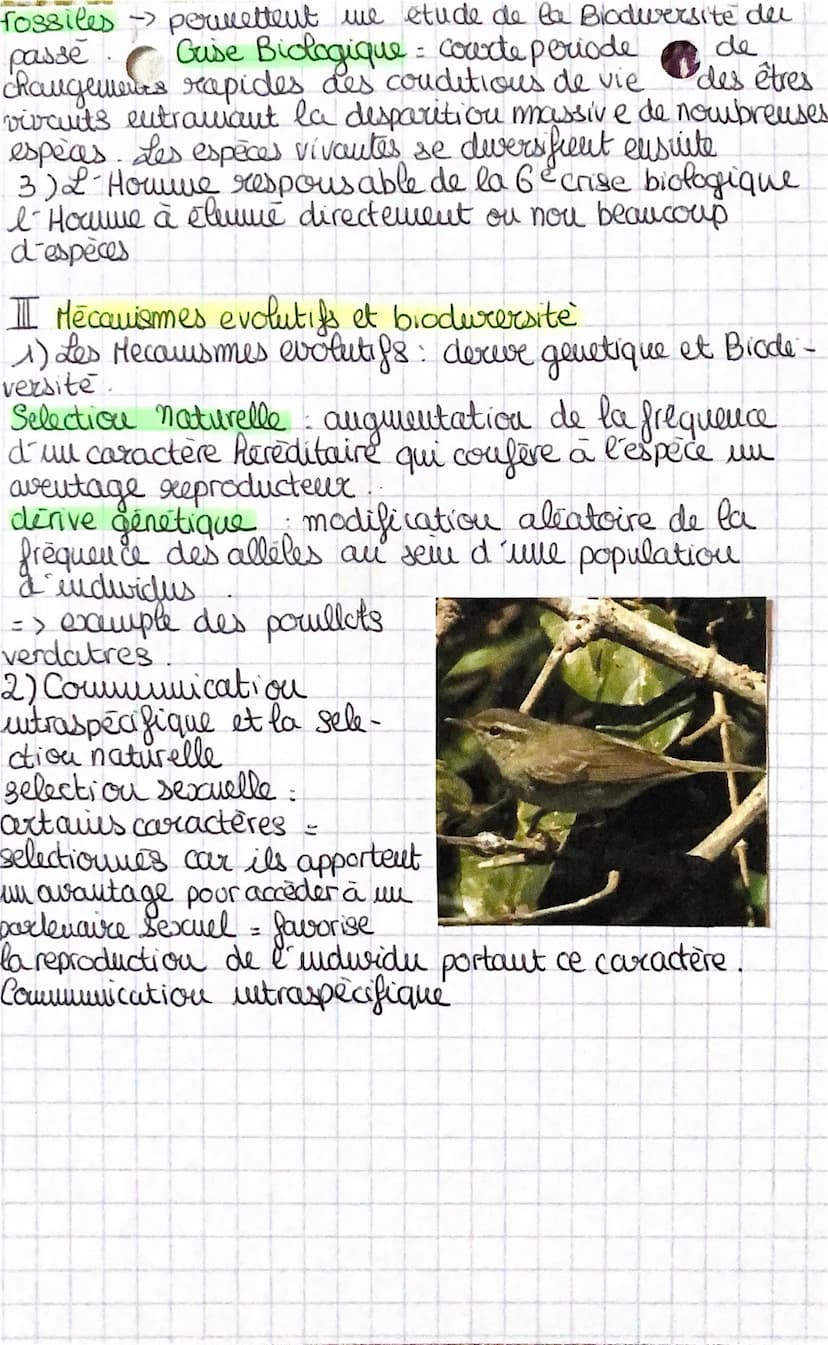 fossiles -> permettent une étude de la Biodiversité du
passé. Crise Biologique = courte periode de
changements rapides des conditions de vie des êtres
vivants entrainant la disparition massive de nombreuses
espèces. Les espèces vivantes se diversifient ensuite
3) L'Homme responsable de la 6e crise biologique
l'Homme à éliminé directement ou non beaucoup
d'espèces
III Mécanismes evolutifs et biodiversité
1) Les Mecanismes evolutifs : derive genetique et Biodi-
versité.
Selection Naturelle : augmentation de la frequence
d'un caractère héréditaire qui confère à l'espèce un
aventage reproducteur.
dérive génétique : modification aléatoire de la
fréquence des allèles au sein d'une population
d'individus.
=> exemple des pouillots
verdatres.
2) Communication
intraspécifique et la sele-
ction naturelle
selection sexuelle :
certains caractères =
selectionnés car ils apportent
un avantage pour accéder à un
partenaire sexuel = favorise
la reproduction de l'individu portant ce caractère.
Communication intraspécifique